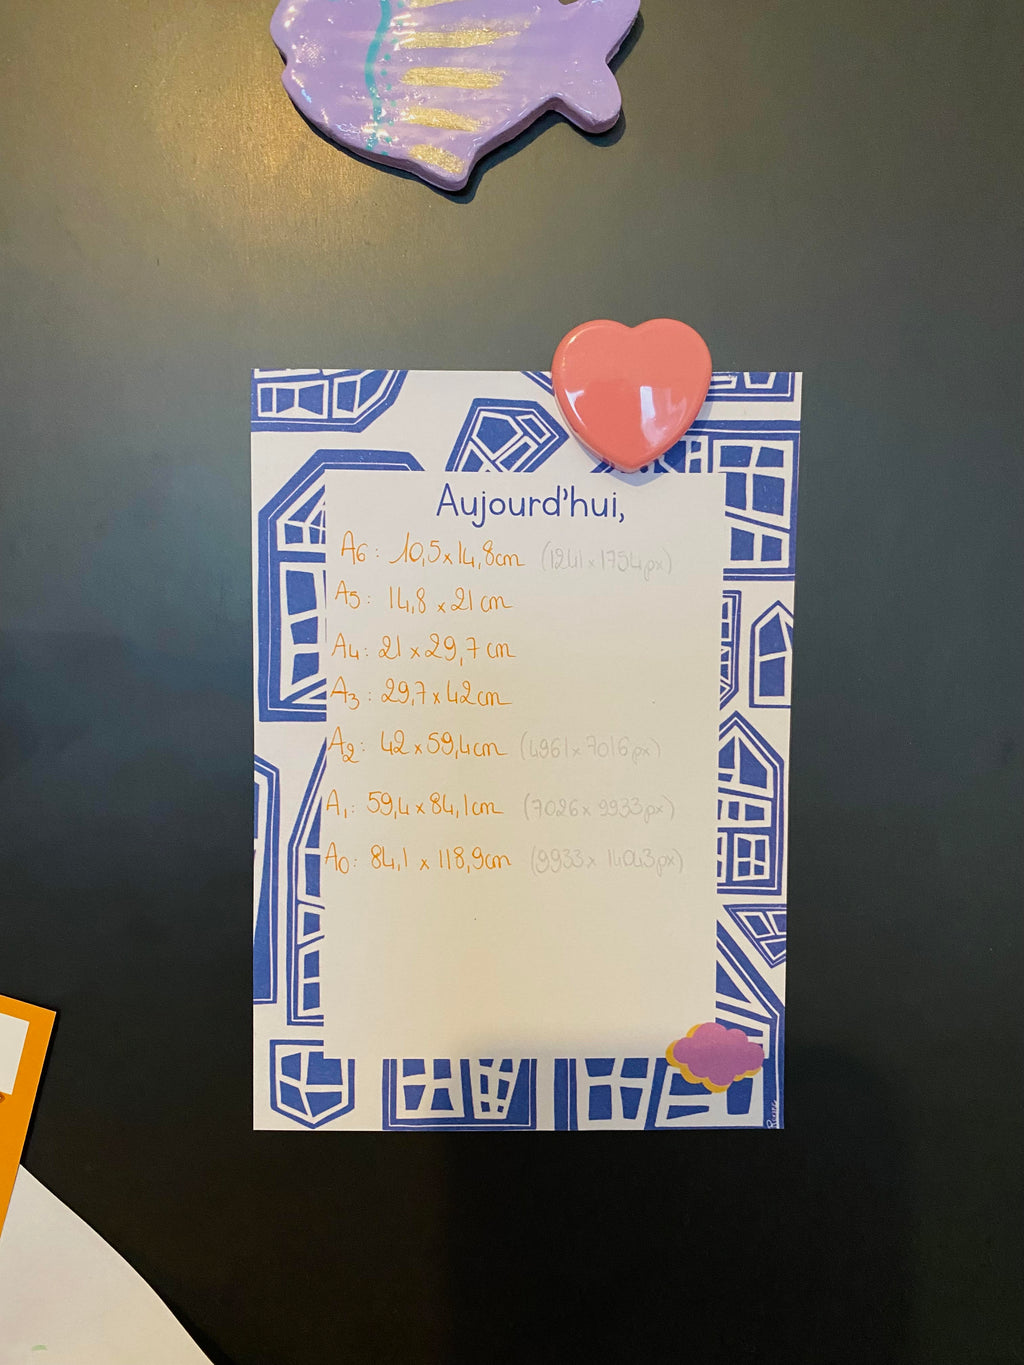 Aujourd'hui,
A6: 10,5x14,8cm (1241x1754px)
A5: 14,8 x 21 cm
A4: 21 x 29,7 cm
A3: 29,7 x 42cm
A2: 42 x 59,4cm (4961x7016px)
A1: 59,4 x 84,1cm (7026x9933px)
A0: 84,1 x 118,9cm (9933x14043px)